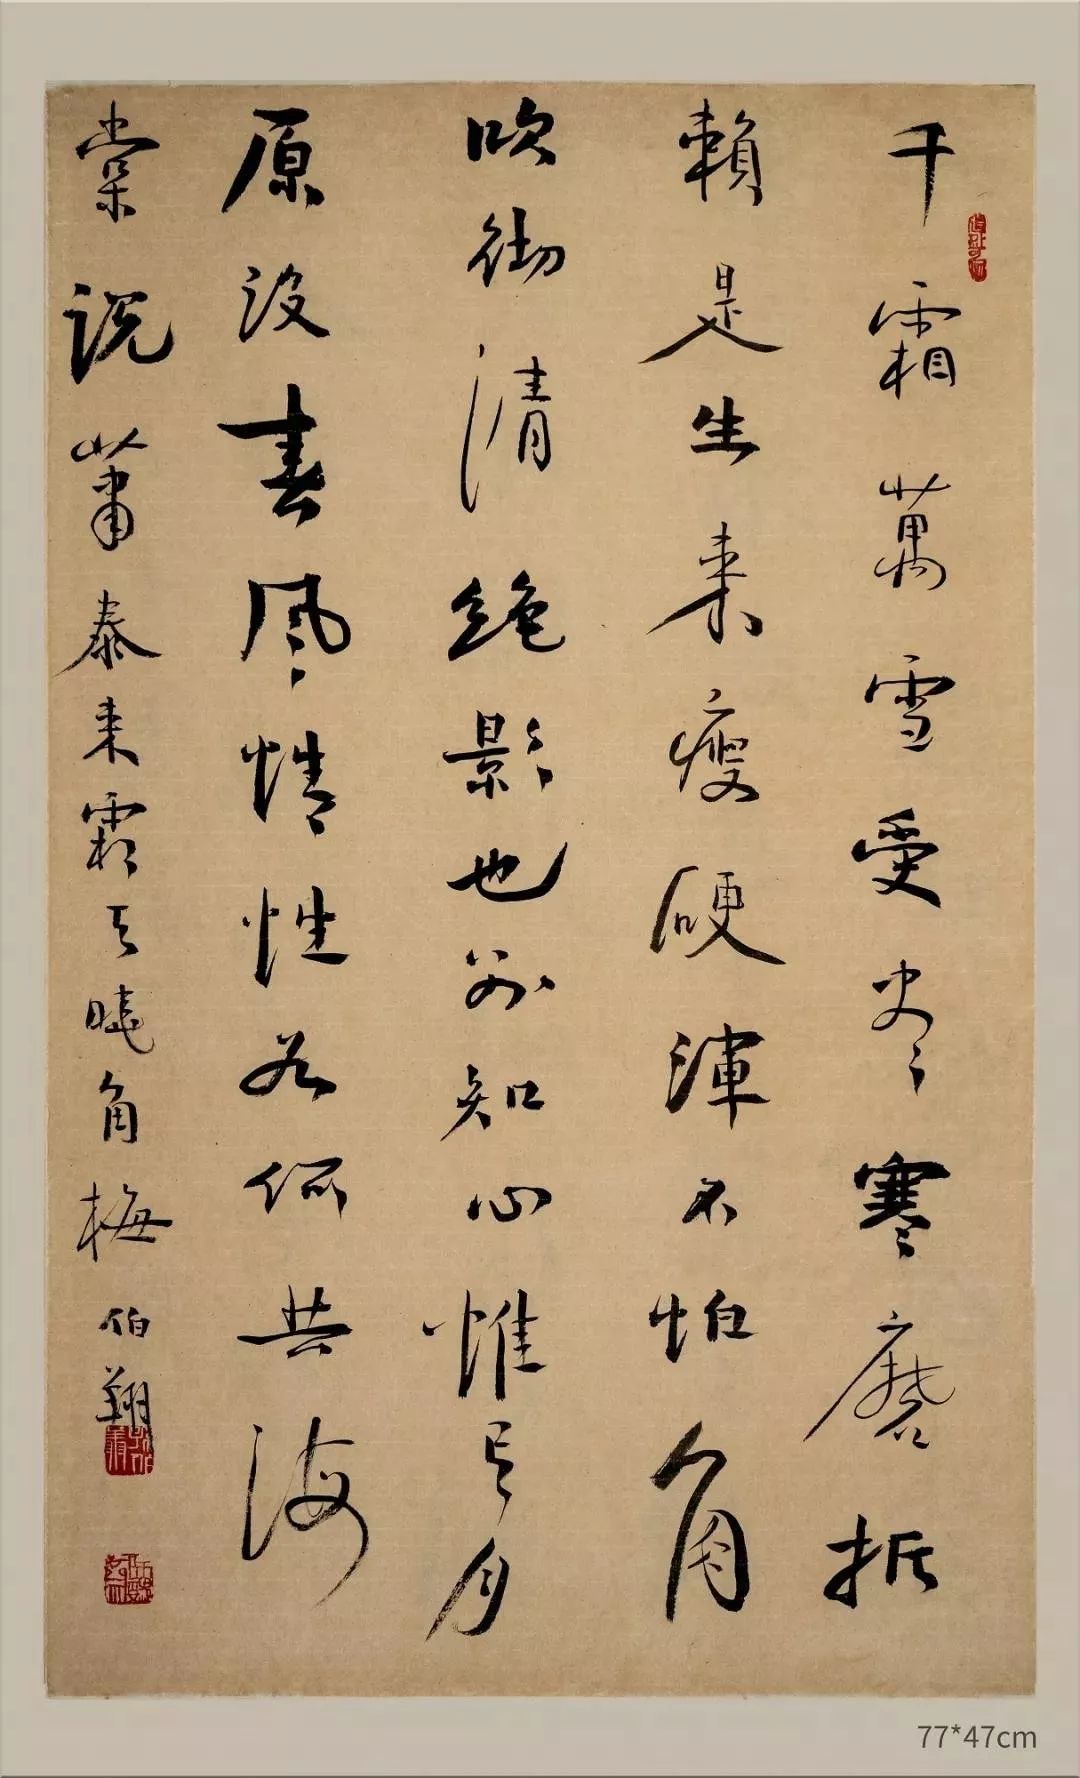 千霜萬雪受尽寒磨折
賴是生来瘦硬渾不怕角
吹彻清絶影也别知心惟有月
原没春風情性如何共海
棠説蕭泰来霜天曉角梅 伯翔
77*47cm